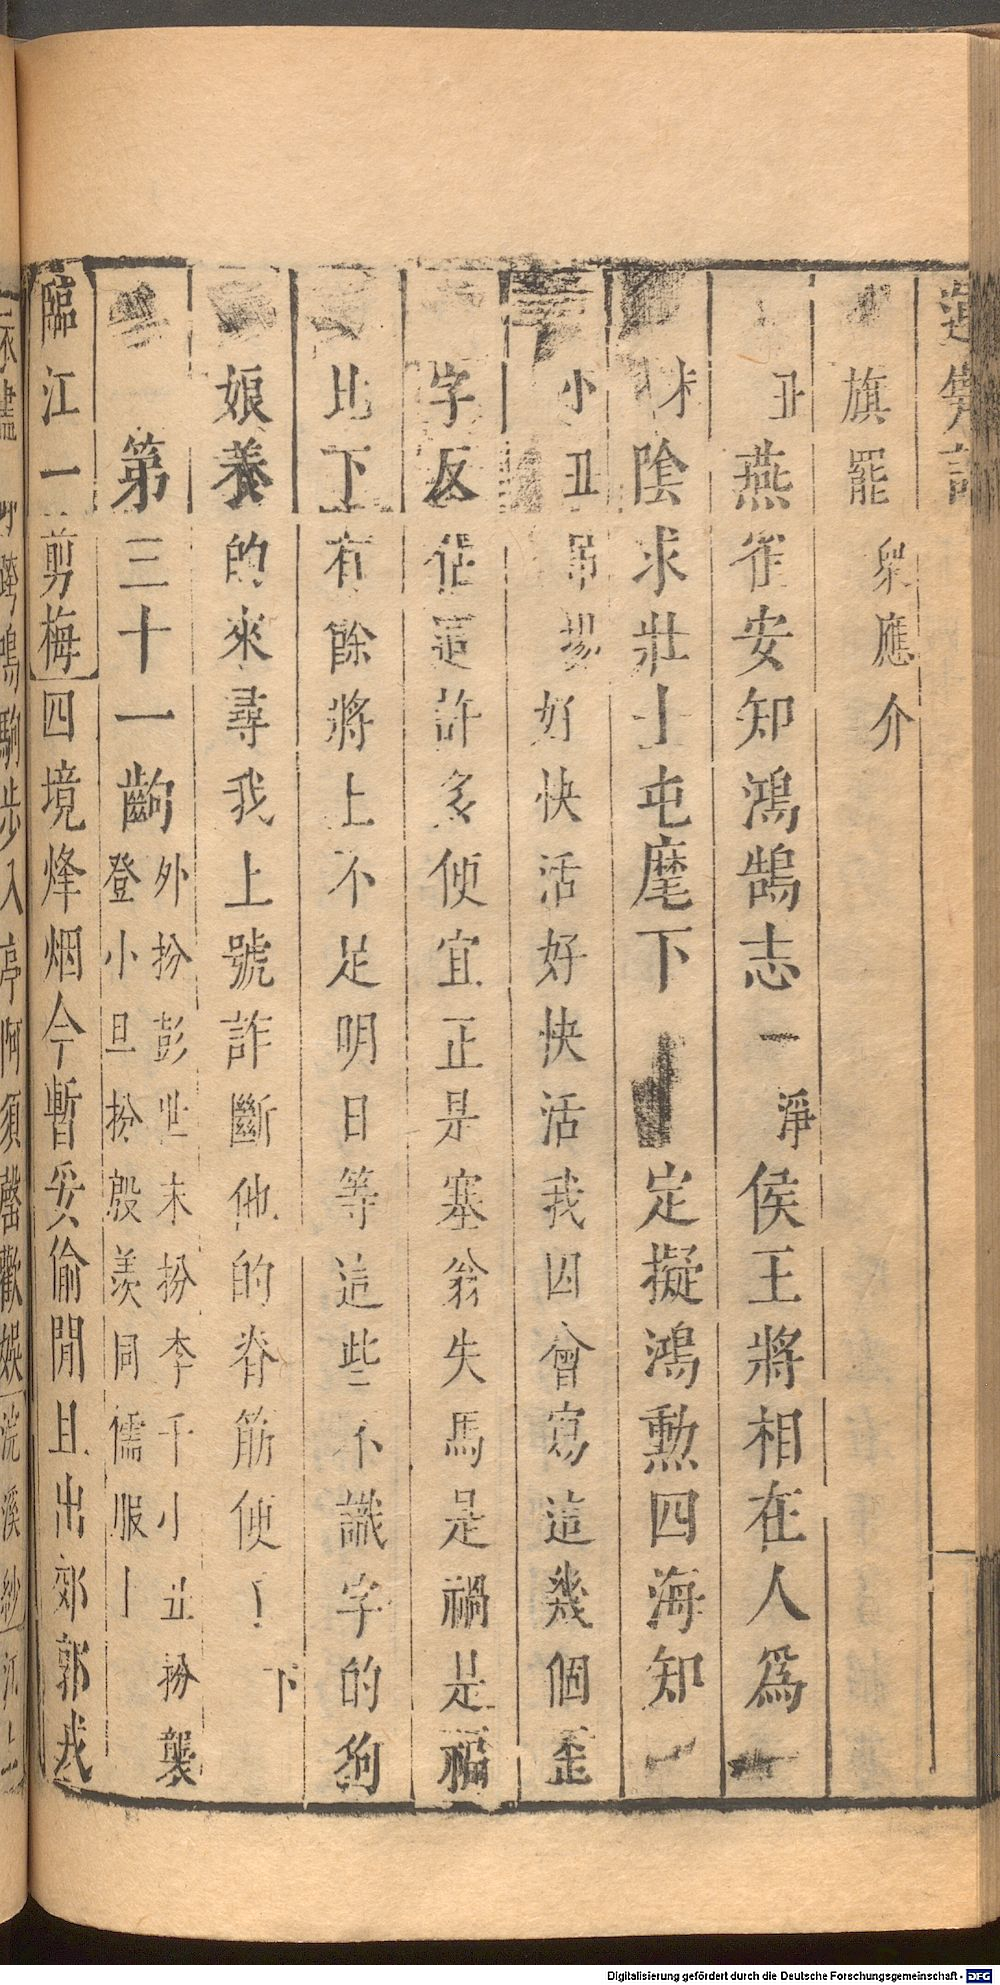 旗罷 衆應介
丑 燕雀安知鴻鵠志 淨 侯王將相在人爲
末 陰求壯士屯麾下 定擬鴻勳四海知
小丑吊場 好快活好快活我囚會寫這幾個歪
字反佔這許多便宜正是塞翁失馬是禍是福
比下有餘將上不足明日等這些不識字的狗
娘養的來尋我上號詐斷他的脊筋便了 下
第三十一齣 外扮彭世末扮李千小丑扮龔
登小旦扮殷羨同儒服上
臨江一剪梅 四境烽烟今暫妥偷閒且出郊郭戎
亭啊須罄歡娛 浣溪紗 江上
Digitalisierung gefördert durch die Deutsche Forschungsgemeinschaft - DFG